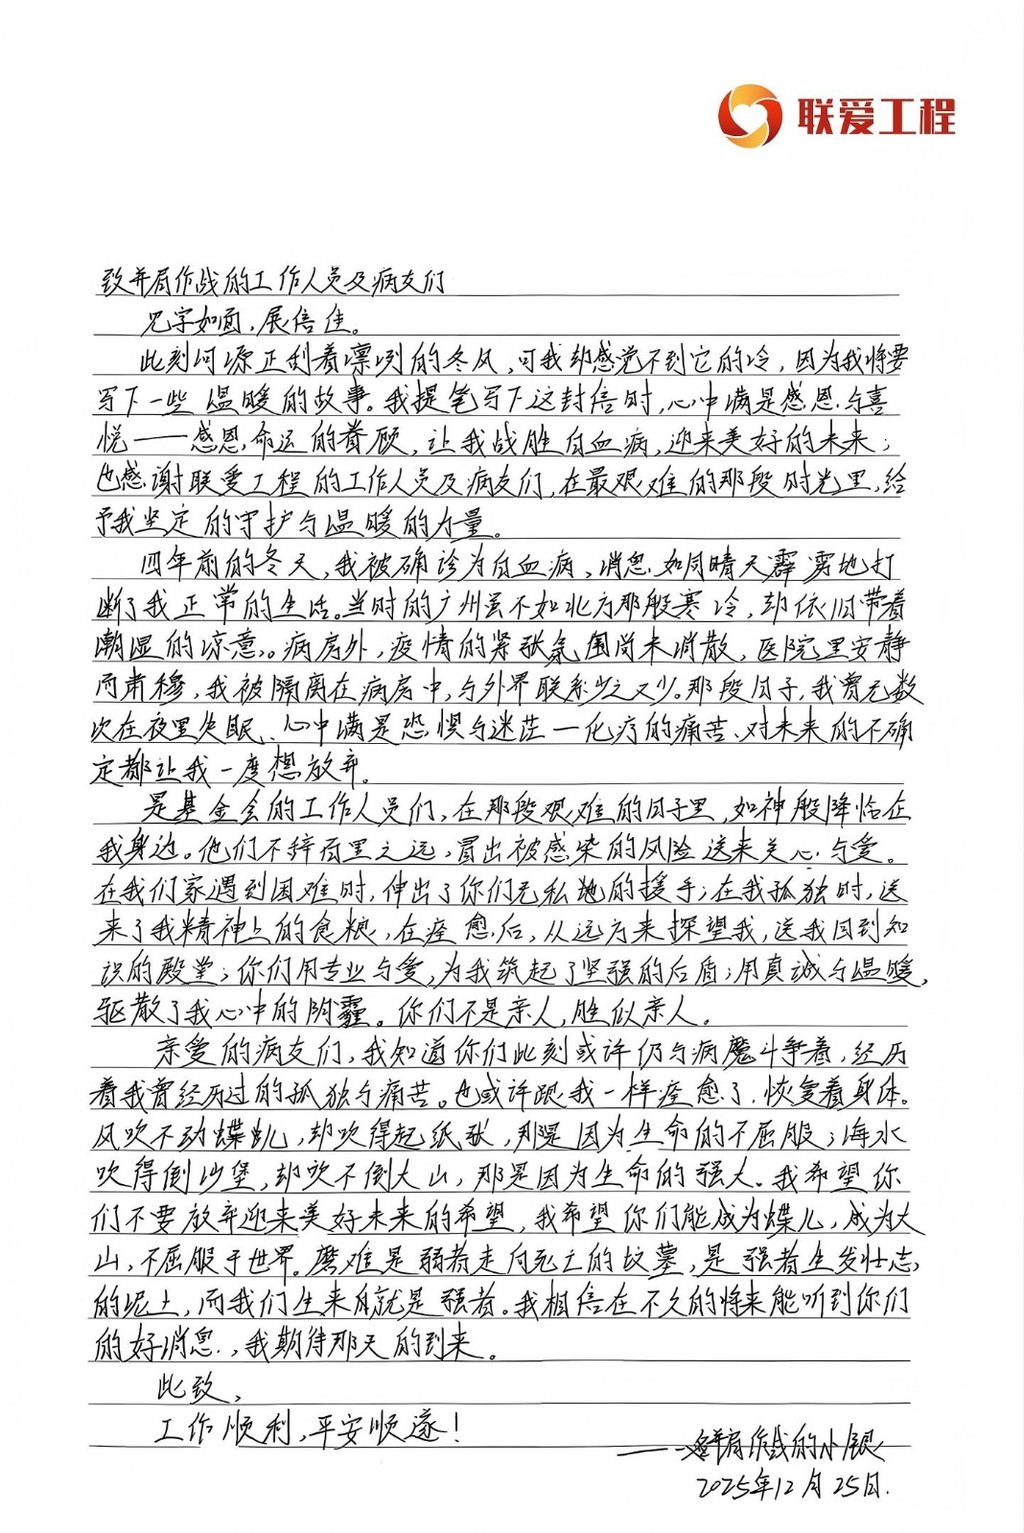 联爱工程
致并肩作战的工作人员及病友们
见字如面，展信佳。
此刻河源正刮着凛冽的冬风，可我却感觉不到它的冷，因为我将要
写下一些温暖的故事。我提笔写下这封信时，心中满是感恩与喜
悦——感恩命运的眷顾，让我战胜白血病，迎来美好的未来；
也感谢联爱工程的工作人员及病友们，在最艰难的那段时光里，给
予我坚定的守护与温暖的力量。
四年前的冬天，我被确诊为白血病，消息如同晴天霹雳地打
断了我正常的生活。当时的广州虽不如北方那般寒冷，却依旧带着
潮湿的凉意。病房外，疫情的紧张氛围尚未消散，医院里安静
而肃穆，我被隔离在病房中，与外界联系少之又少。那段日子，我曾无数
次在夜里失眠、心中满是恐惧与迷茫—化疗的痛苦、对未来的不确
定都让我一度想放弃。
是基金会的工作人员们，在那段艰难的日子里，如神般降临在
我身边。他们不辞百里之远，冒出被感染的风险送来关心与爱。
在我们家遇到困难时，伸出了你们无私地的援手；在我孤独时，送
来了我精神上的食粮，在痊愈后，从远方来探望我，送我回到知
识的殿堂；你们用专业与爱，为我筑起了坚强的后盾；用真诚与温暖，
驱散了我心中的阴霾。你们不是亲人，胜似亲人。
亲爱的病友们，我知道你们此刻或许仍与病魔斗争着，经历
着我曾经历过的孤独与痛苦。也或许跟我一样痊愈了，恢复着身体。
风吹不动蝶儿，却吹得起纸张，那是因为生命的不屈服；海水
吹得倒沙堡，却吹不倒大山，那是因为生命的强大。我希望你
们不要放弃迎来美好未来的希望，我希望你们能成为蝶儿，成为大
山，不屈服于世界。磨难是弱者走向死亡的坟墓，是强者生发壮志
的泥土，而我们生来就是强者。我相信在不久的将来能听到你们
的好消息，我期待那天的到来。
此致，
工作顺利，平安顺遂！
——并肩作战的小银
2025年12月25日.